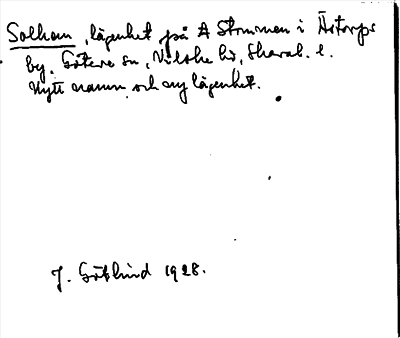 Solhem, lägenhet på A Strommen i Åstorps
by, Götene sn, Vilske hd, Skarab. l.
Nytt namn och ny lägenhet.
J. Götlind 1928.